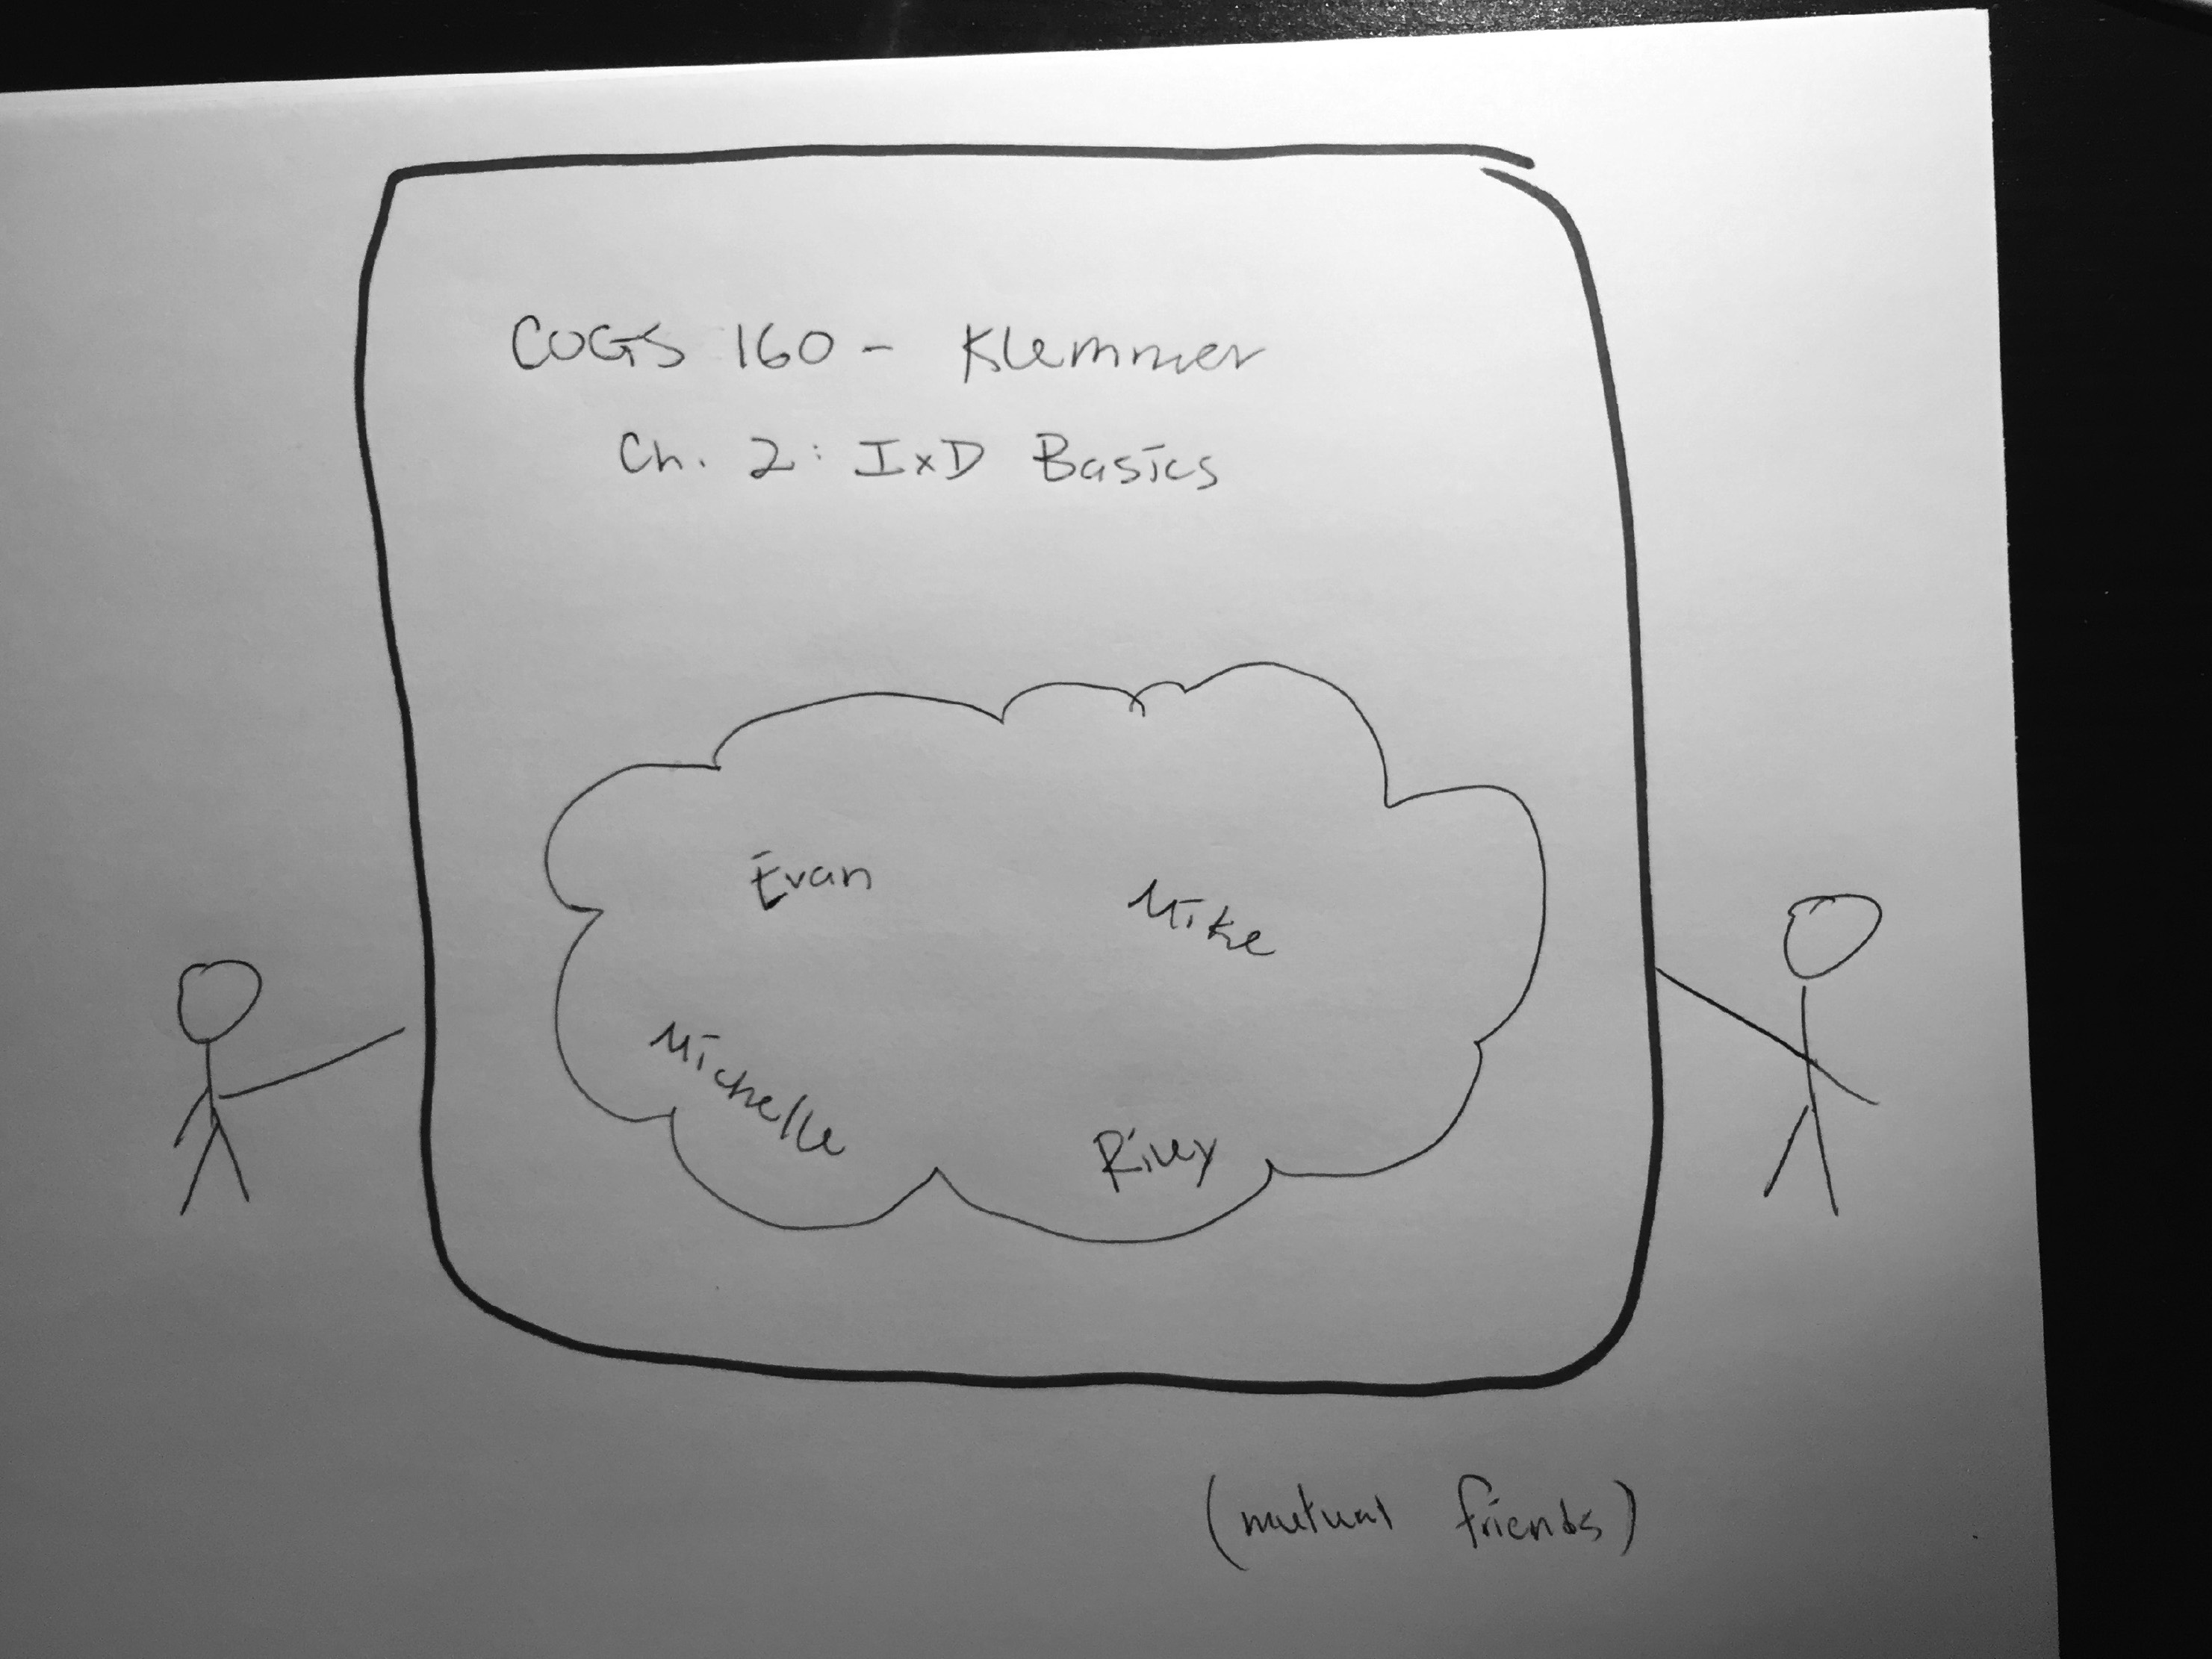 COGS 160 - Klemmer
Ch. 2: IxD Basics
Evan
Mike
Michelle
Riley
(mutual friends)